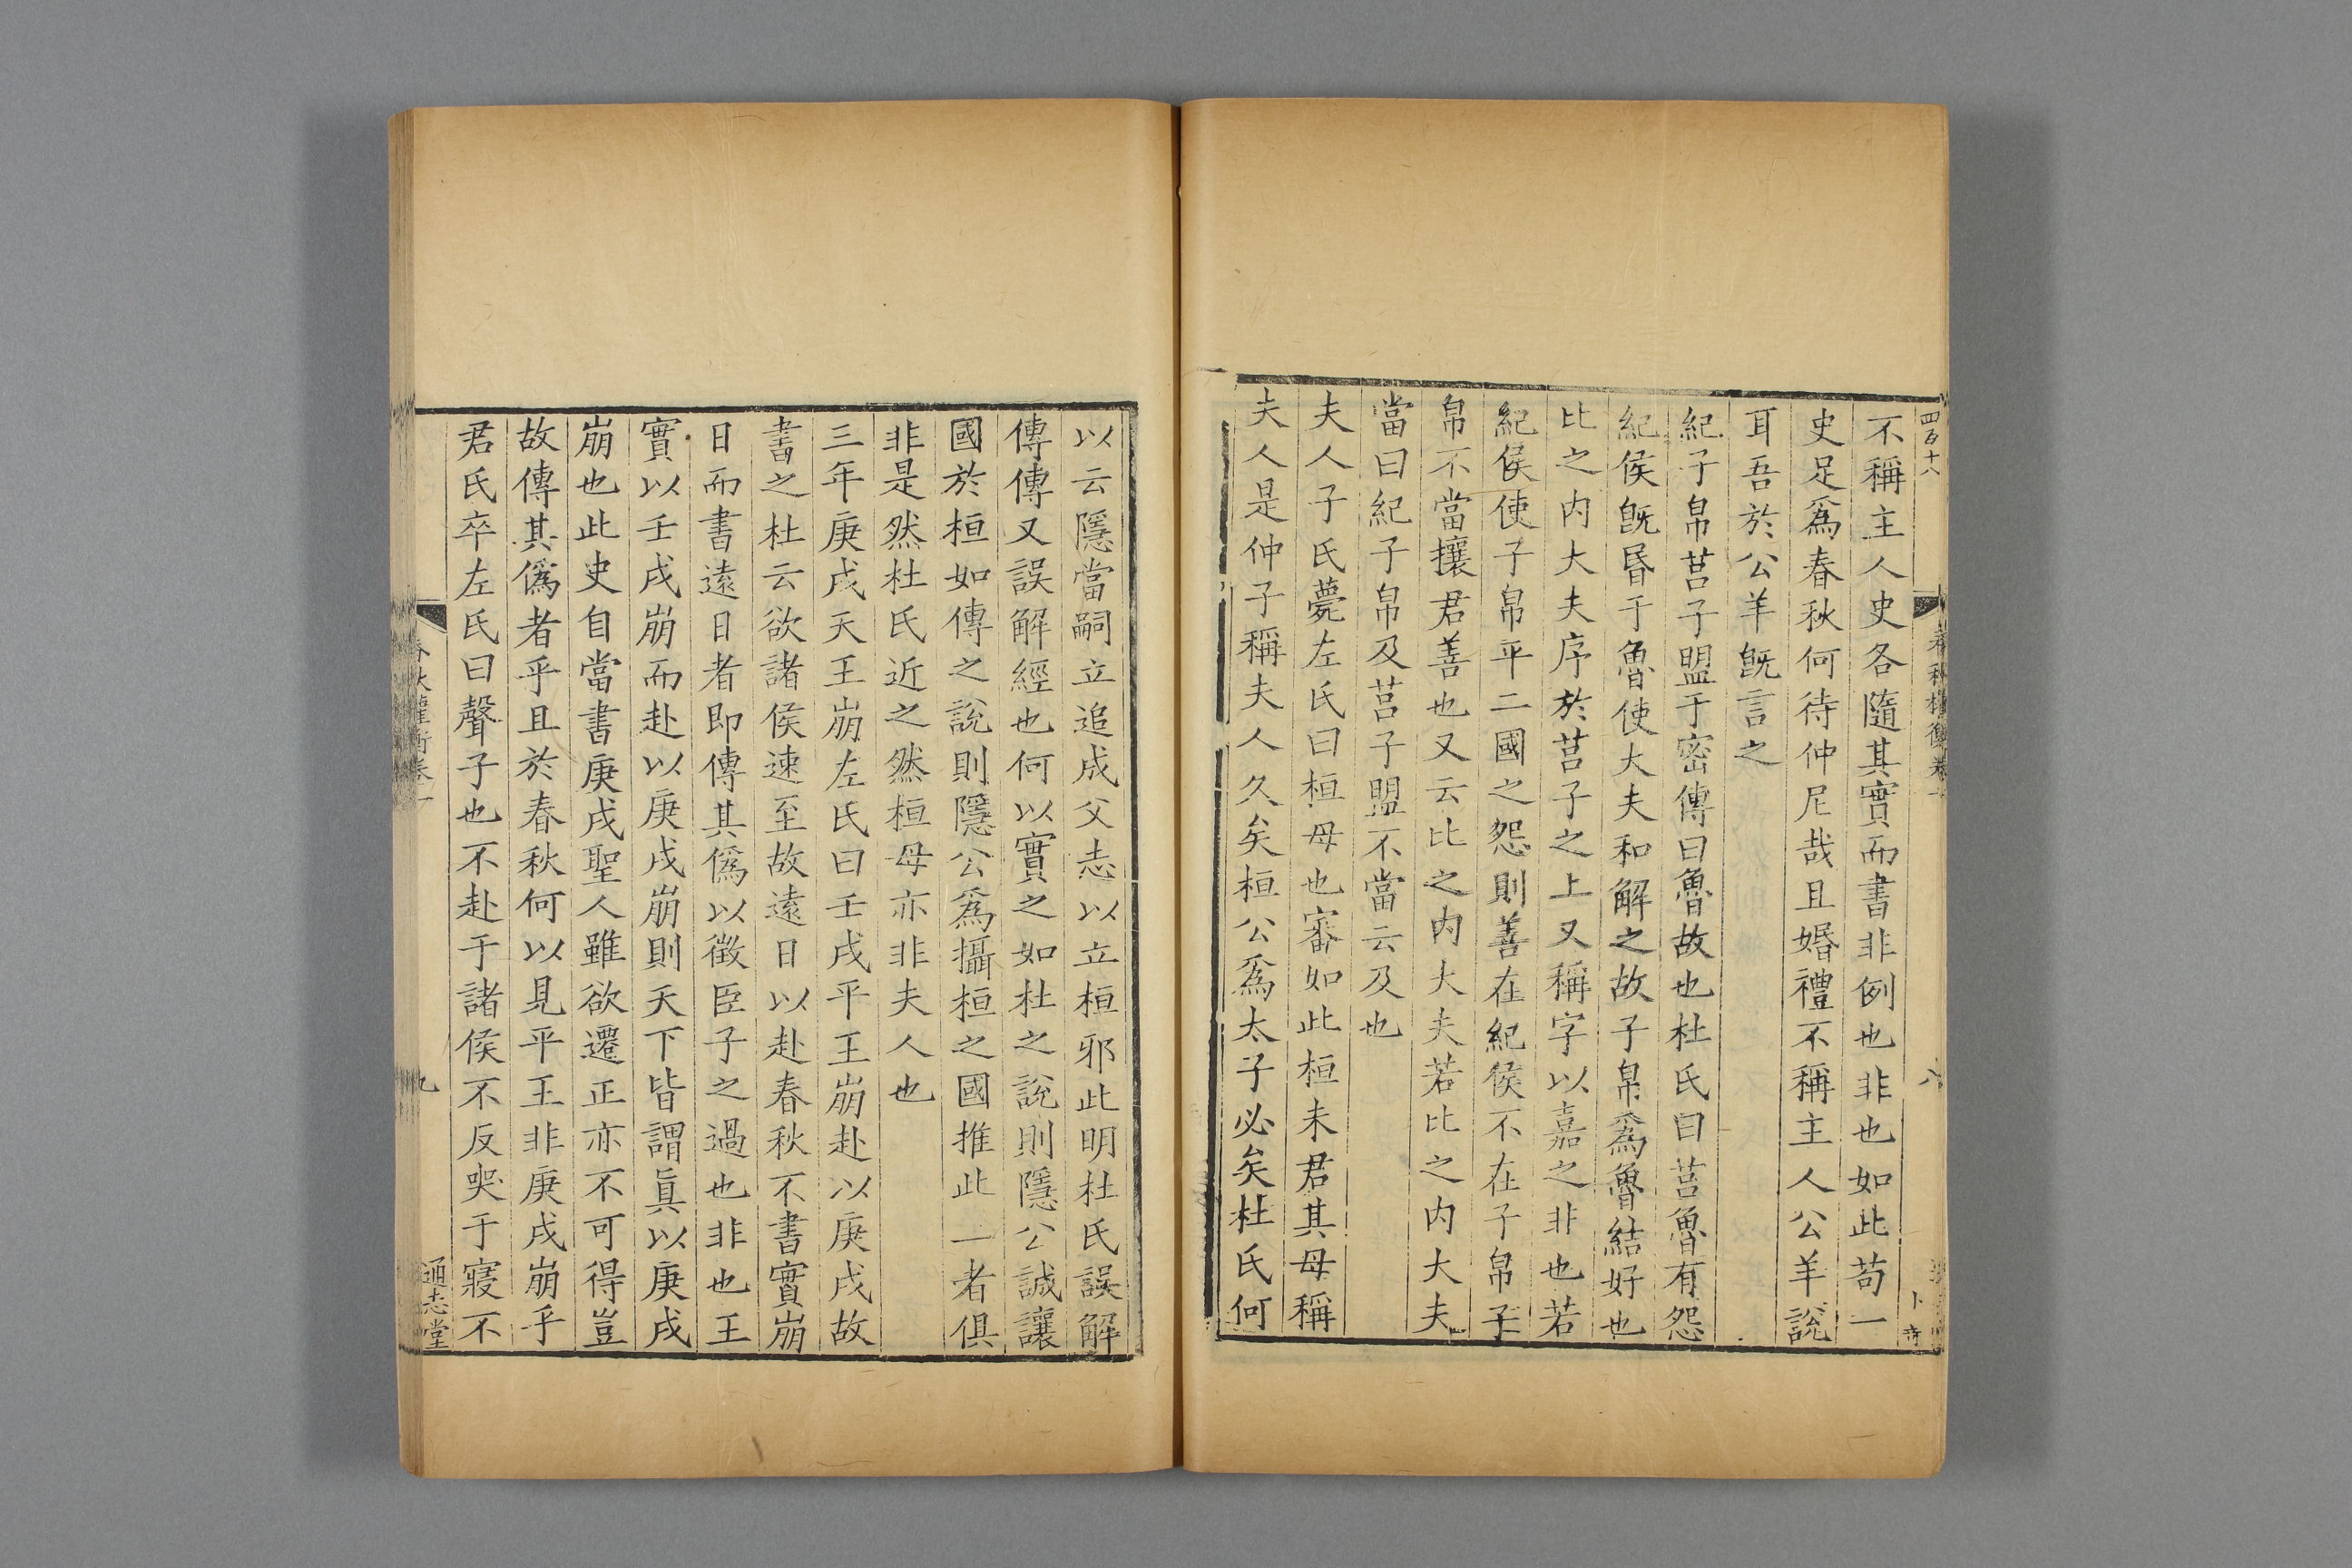 四百十八
春秋權衡卷一
八
不稱主人史各隨其實而書非例也非也如此苟一
史足爲春秋何待仲尼哉且婚禮不稱主人公羊說
耳吾於公羊旣言之
紀子帛莒子盟于密傳曰魯故也杜氏曰莒魯有怨
紀侯旣昬于魯使大夫和解之故子帛爲魯結好也
比之内大夫序於莒子之上又稱字以嘉之非也若
紀侯使子帛平二國之怨則善在紀侯不在子帛子
帛不當攘君善也又云比之内大夫若比之内大夫
當曰紀子帛及莒子盟不當云及也
夫人子氏薨左氏曰桓母也審如此桓未君其母稱
夫人是仲子稱夫人久矣桓公爲太子必矣杜氏何
以云隱當嗣立追成父志以立桓邪此明杜氏誤解
傳傳又誤解經也何以實之如杜之說則隱公誠讓
國於桓如傳之說則隱公爲攝桓之國推此一者俱
非是然杜氏近之然桓母亦非夫人也
三年庚戌天王崩左氏曰壬戌平王崩赴以庚戌故
書之杜云欲諸侯速至故遠日以赴春秋不書實崩
日而書遠日者即傳其僞以徵臣子之過也非也王
實以壬戌崩而赴以庚戌崩則天下皆謂眞以庚戌
崩也此史自當書庚戌聖人雖欲遷正亦不可得豈
故傳其僞者乎且於春秋何以見平王非庚戌崩乎
君氏卒左氏曰聲子也不赴于諸侯不反哭于寢不
春秋權衡卷一
九
通志堂